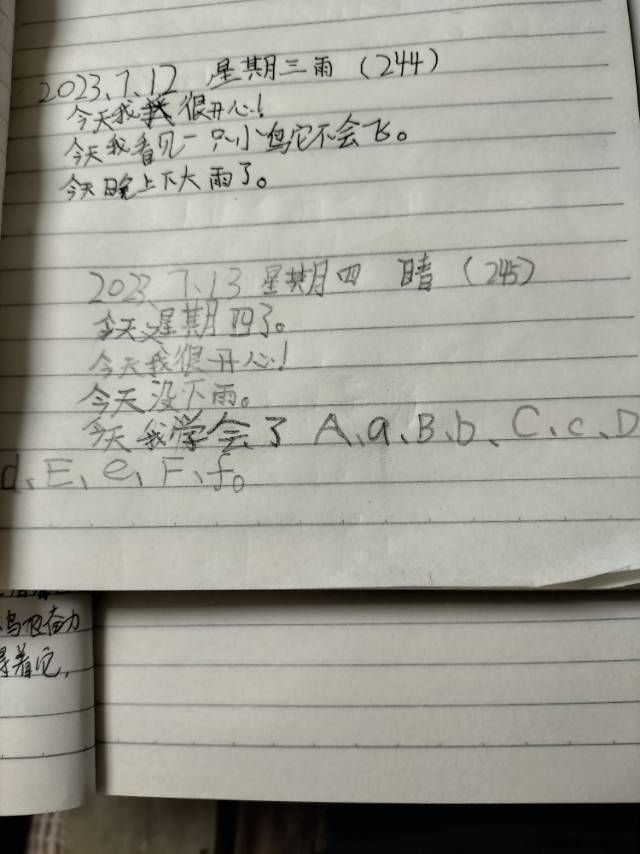 2023、7、12 星期三雨（244）
今天我很开心！
今天我看见一只小鸟它不会飞。
今天晚上下大雨了。
2023、7、13 星期四 晴（245）
今天星期四了。
今天我很开心！
今天没下雨。
今天我学会了 A、a、B、b、C、c、D
d、E、e、F、f。
奋力
着它，